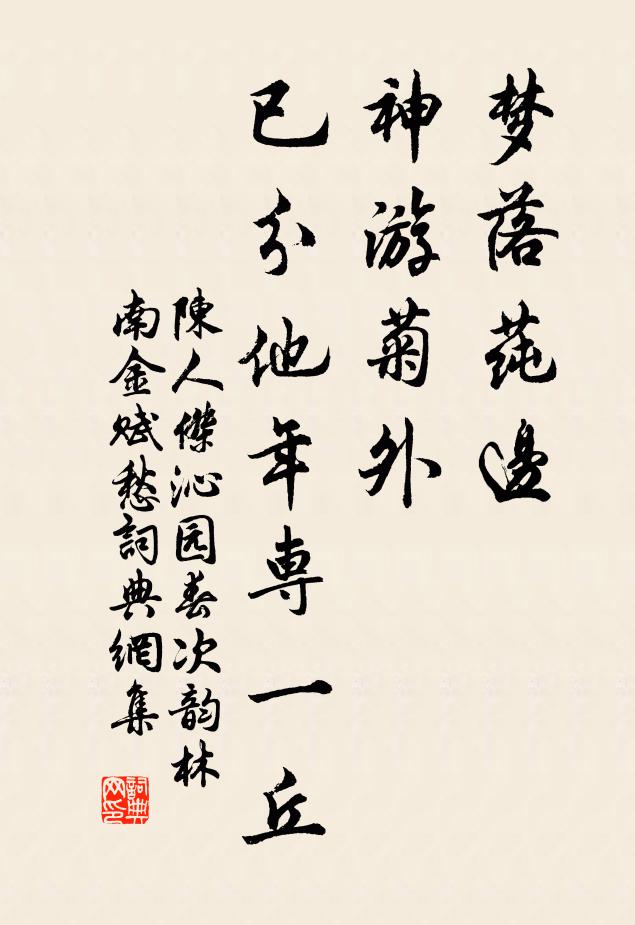 梦落莼邊
神游菊外
已分他年専一丘
陳人傑沁园春次韵林
南金赋愁詞典網集
詞典
网印